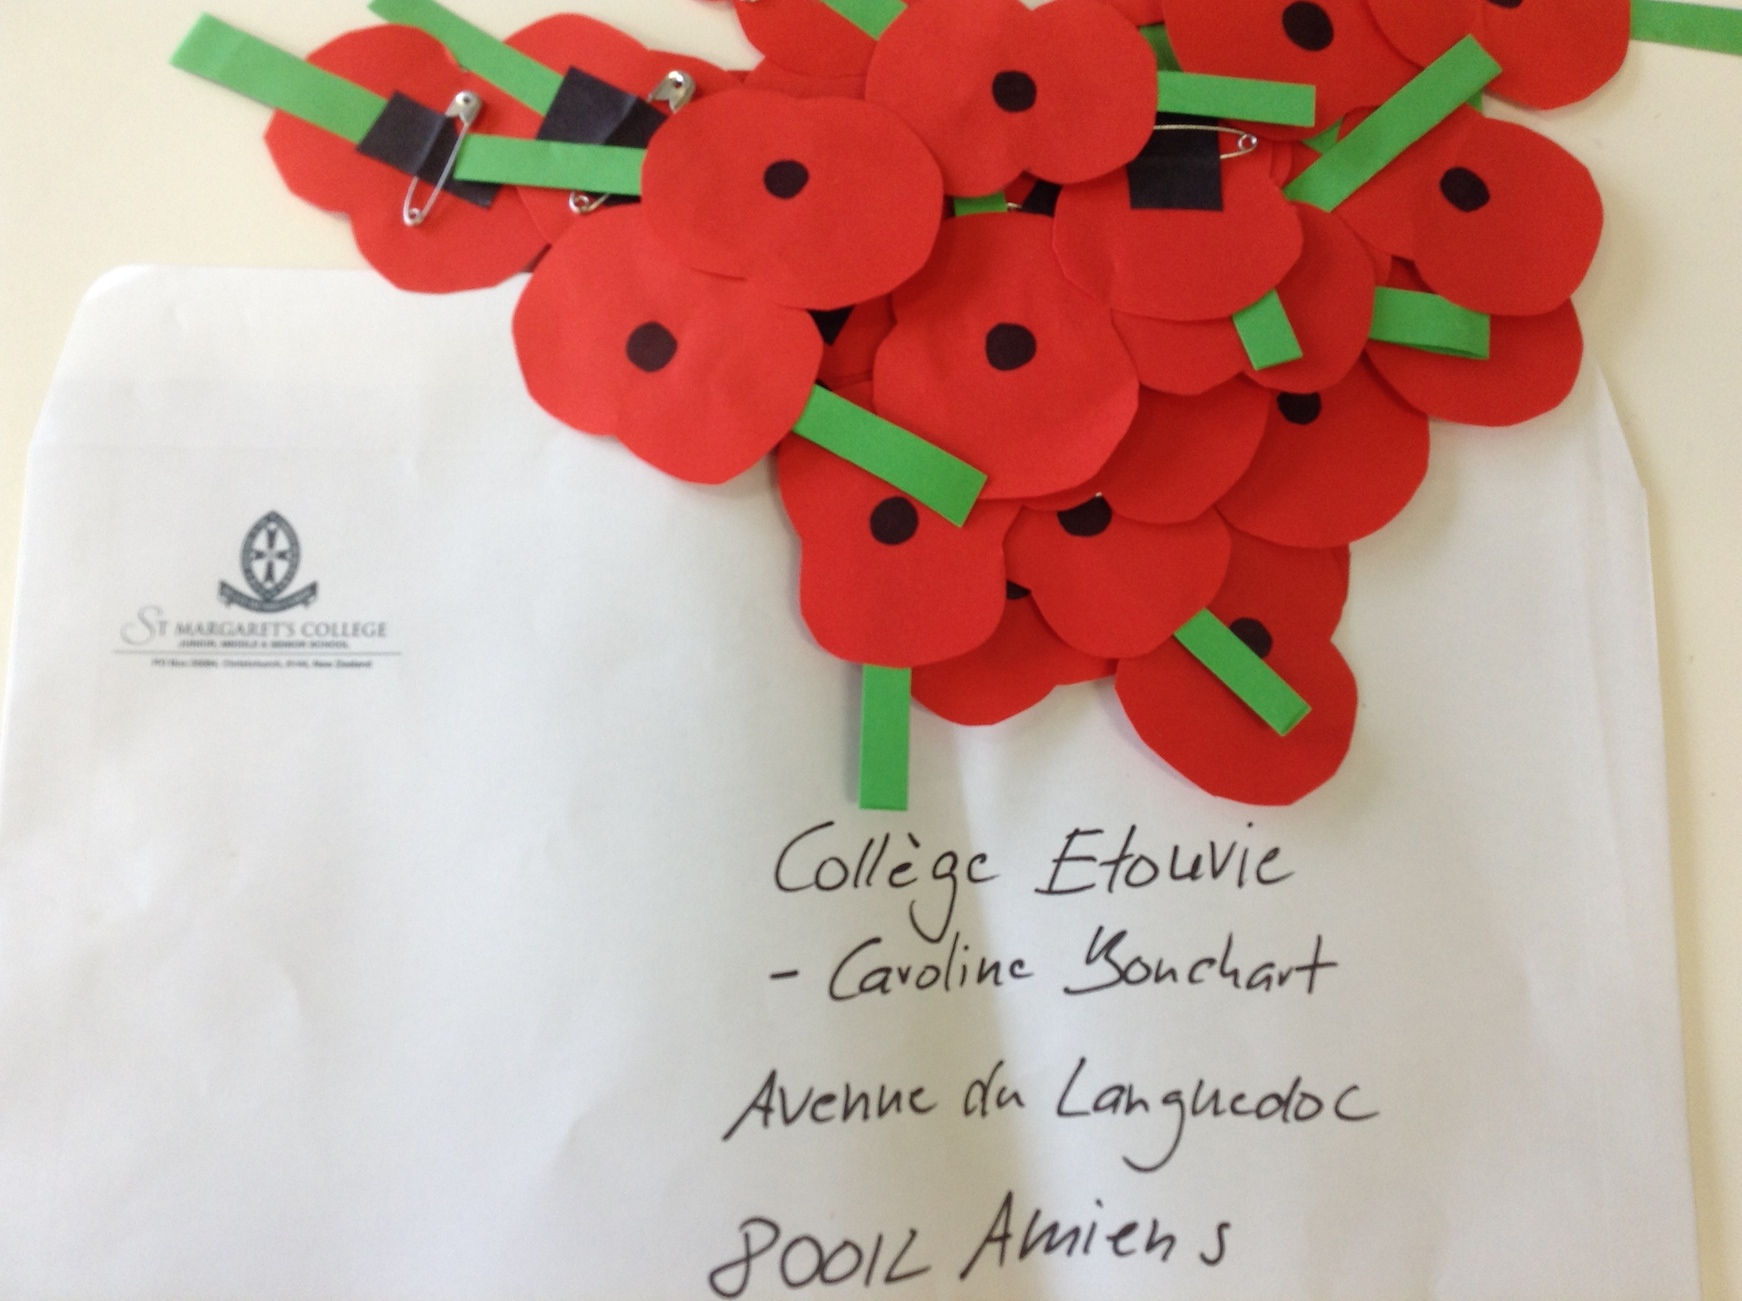 ST MARGARET'S COLLEGE
JUNIOR, MIDDLE & SENIOR SCHOOL
PO Box Christchurch, New Zealand
Collège Etouvie
- Caroline Bouchart
Avenue du Languedoc
80012 Amiens